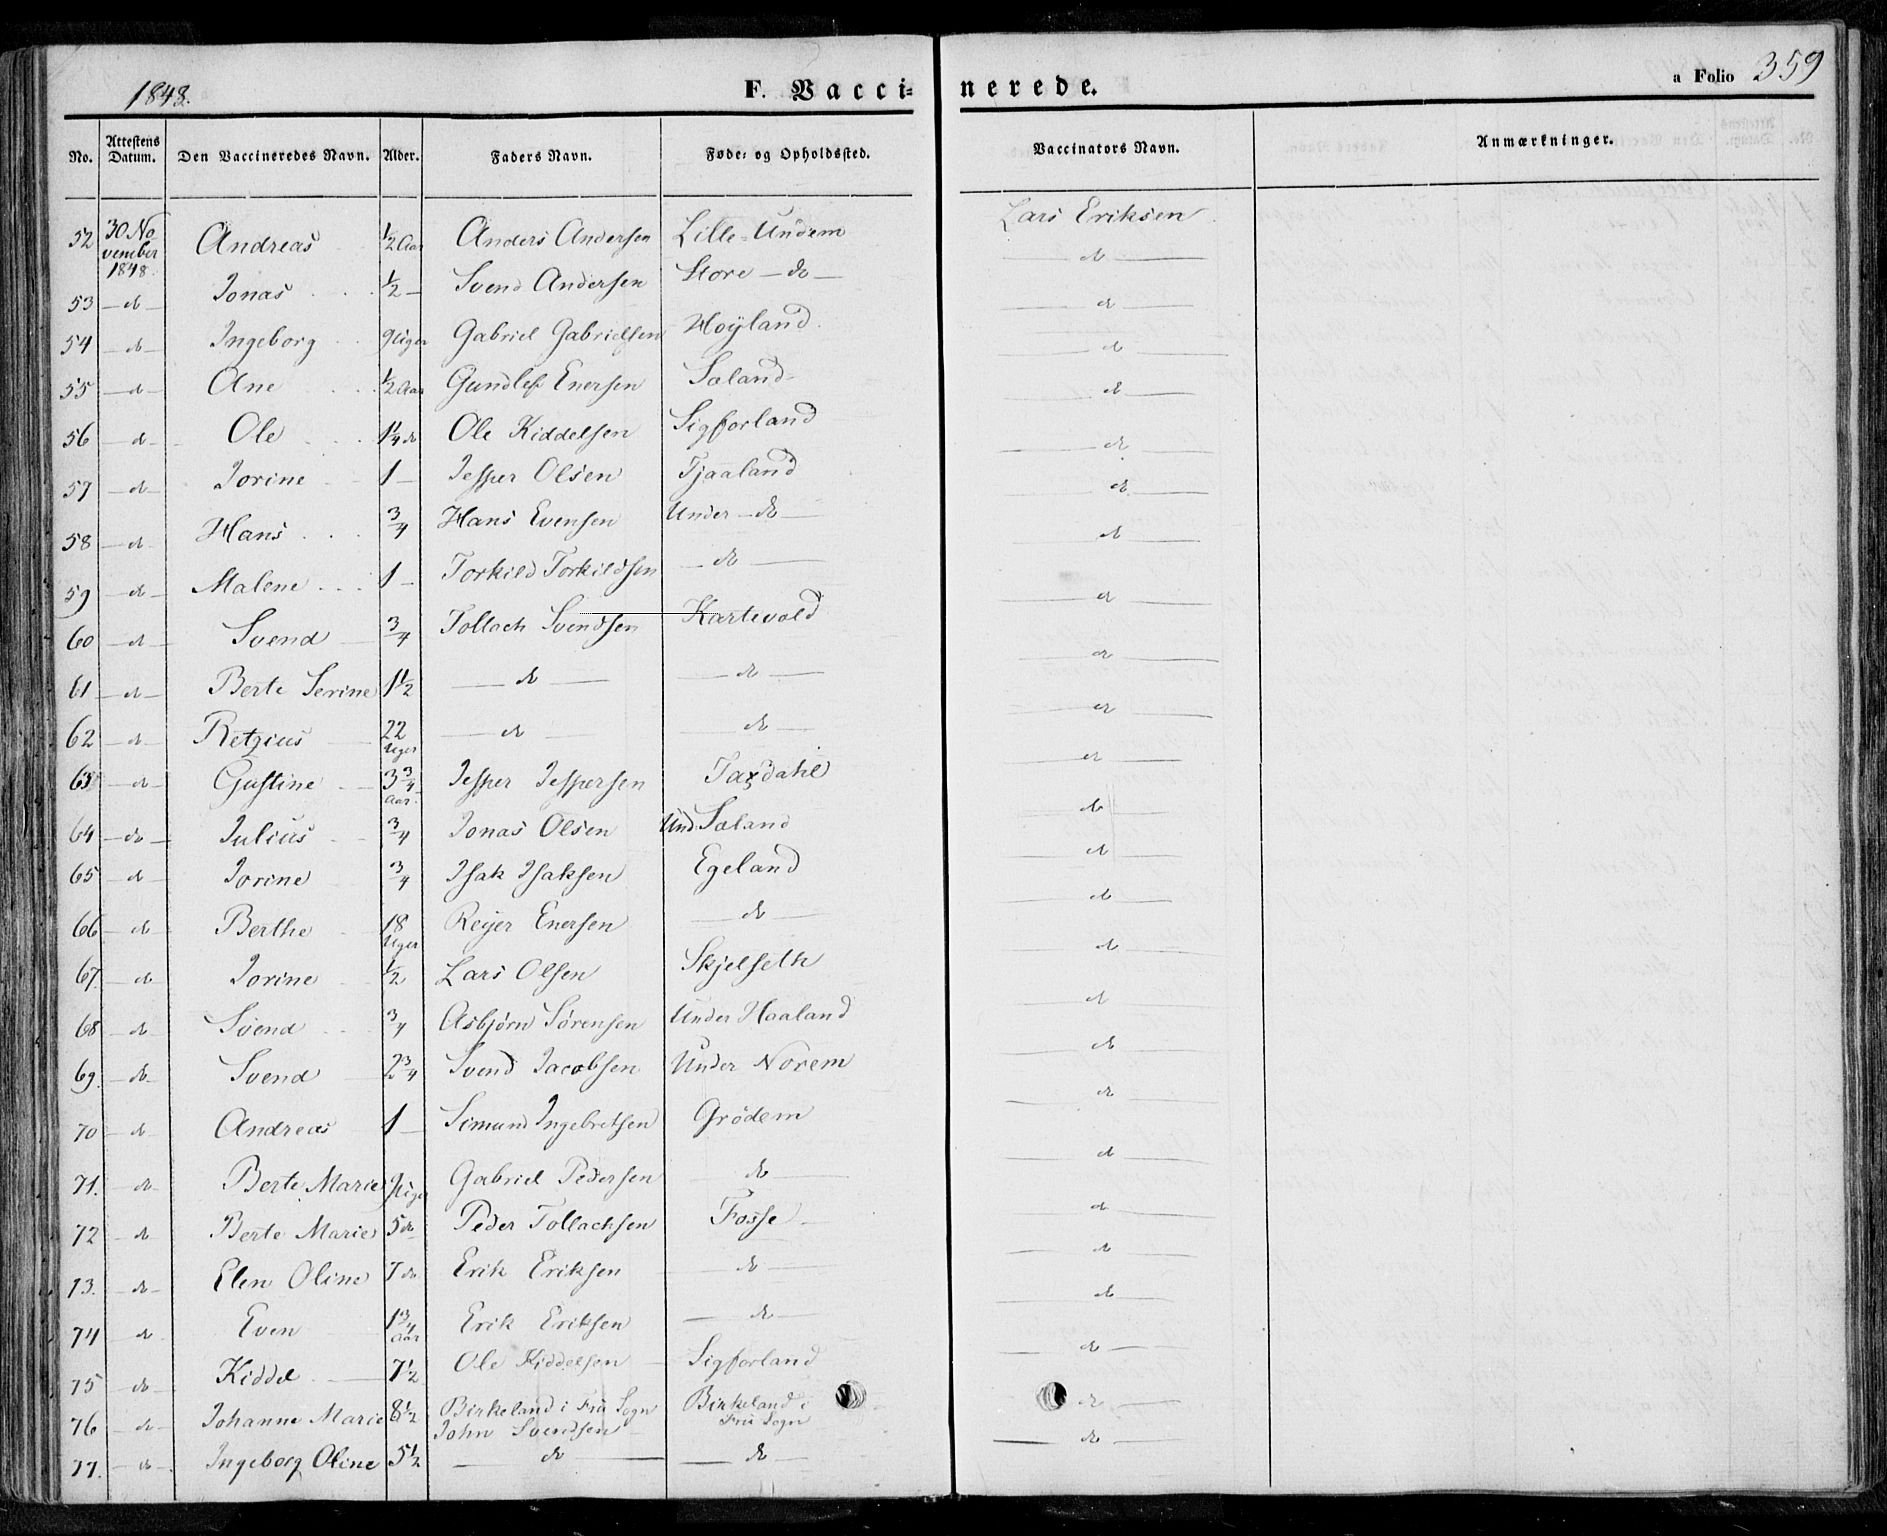 1848. F. Vacci= nerede. a Folio 359
No. Attestens Datum. Den Vaccineredes Navn. Alder. Faders Navn. Føde= og Opholdssted. Vaccinators Navn. Anmærkninger.
52 30 November 1848. Andreas ½ Aar Anders Andersen Lille=Undem Lars Eriksen.
53 – do – Jonas ½ – Svend Andersen Store – do – – do –
54 – do – Ingeborg 9 Uger Gabriel Gabrielsen Höyland. – do –
55 – do – Ane ½ Aar Gundlef Enersen Sæland – do –
56 – do – Ole 1¼ do Ole Kiddelsen Sigforland – do –
57 – do – Jorine 1 – Jesper Olsen Tjaaland – do –
58 – do – Hans ¾ Hans Evensen Under – do – – do –
59 – do – Malene 1 – Torkild Torkildsen – do – – do –
60 – do – Svend ¾ Tollach Svendsen Kartevold – do –
61 – do – Berte Serine 1½ – do – – do – – do –
62 – do – Retzius 22 Uger – do – – do – – do –
63 – do – Gustine 3¾ Aar. Jesper Jespersen Taxdahl – do –
64 – do – Julius ¾ Jonas Olsen Und Sæland – do –
65 – do – Jorine ¾ Isak Isaksen Egeland – do –
66 – do – Berthe 18 Uger Reijer Enersen – do – – do –
67. – do Jorine ½ Lars Olsen Skjelseth – do –
68 – do Svend ¾ Asbjørn Sørensen Under Haaland – do –
69. – do – Svend 2¾ Svend Jacobsen Under Norem – do –
70 – do – Andreas 1 – Simund Ingebretsen Grödem – do –
71. – do – Berte Marie Uger Gabriel Pedersen – do – – do –
72 – do – Berte Marie 5 do Peder Tollachsen Fosse – – do –
73. – do – Elen Oline 7 do Erik Eriksen – do – – do –
74 – do Even 1¾ Aar Erik Eriksen – do – – do –
75 – do – Kiddel 7½ Ole Kiddelsen Sigforland – do –
76 – do – Johanne Marie 8½ Birkeland i Frü Sogn John Svendsen Birkeland i Frü Sogn – do –
77. – do – Ingeborg Oline 5½ – do – – do – – do –